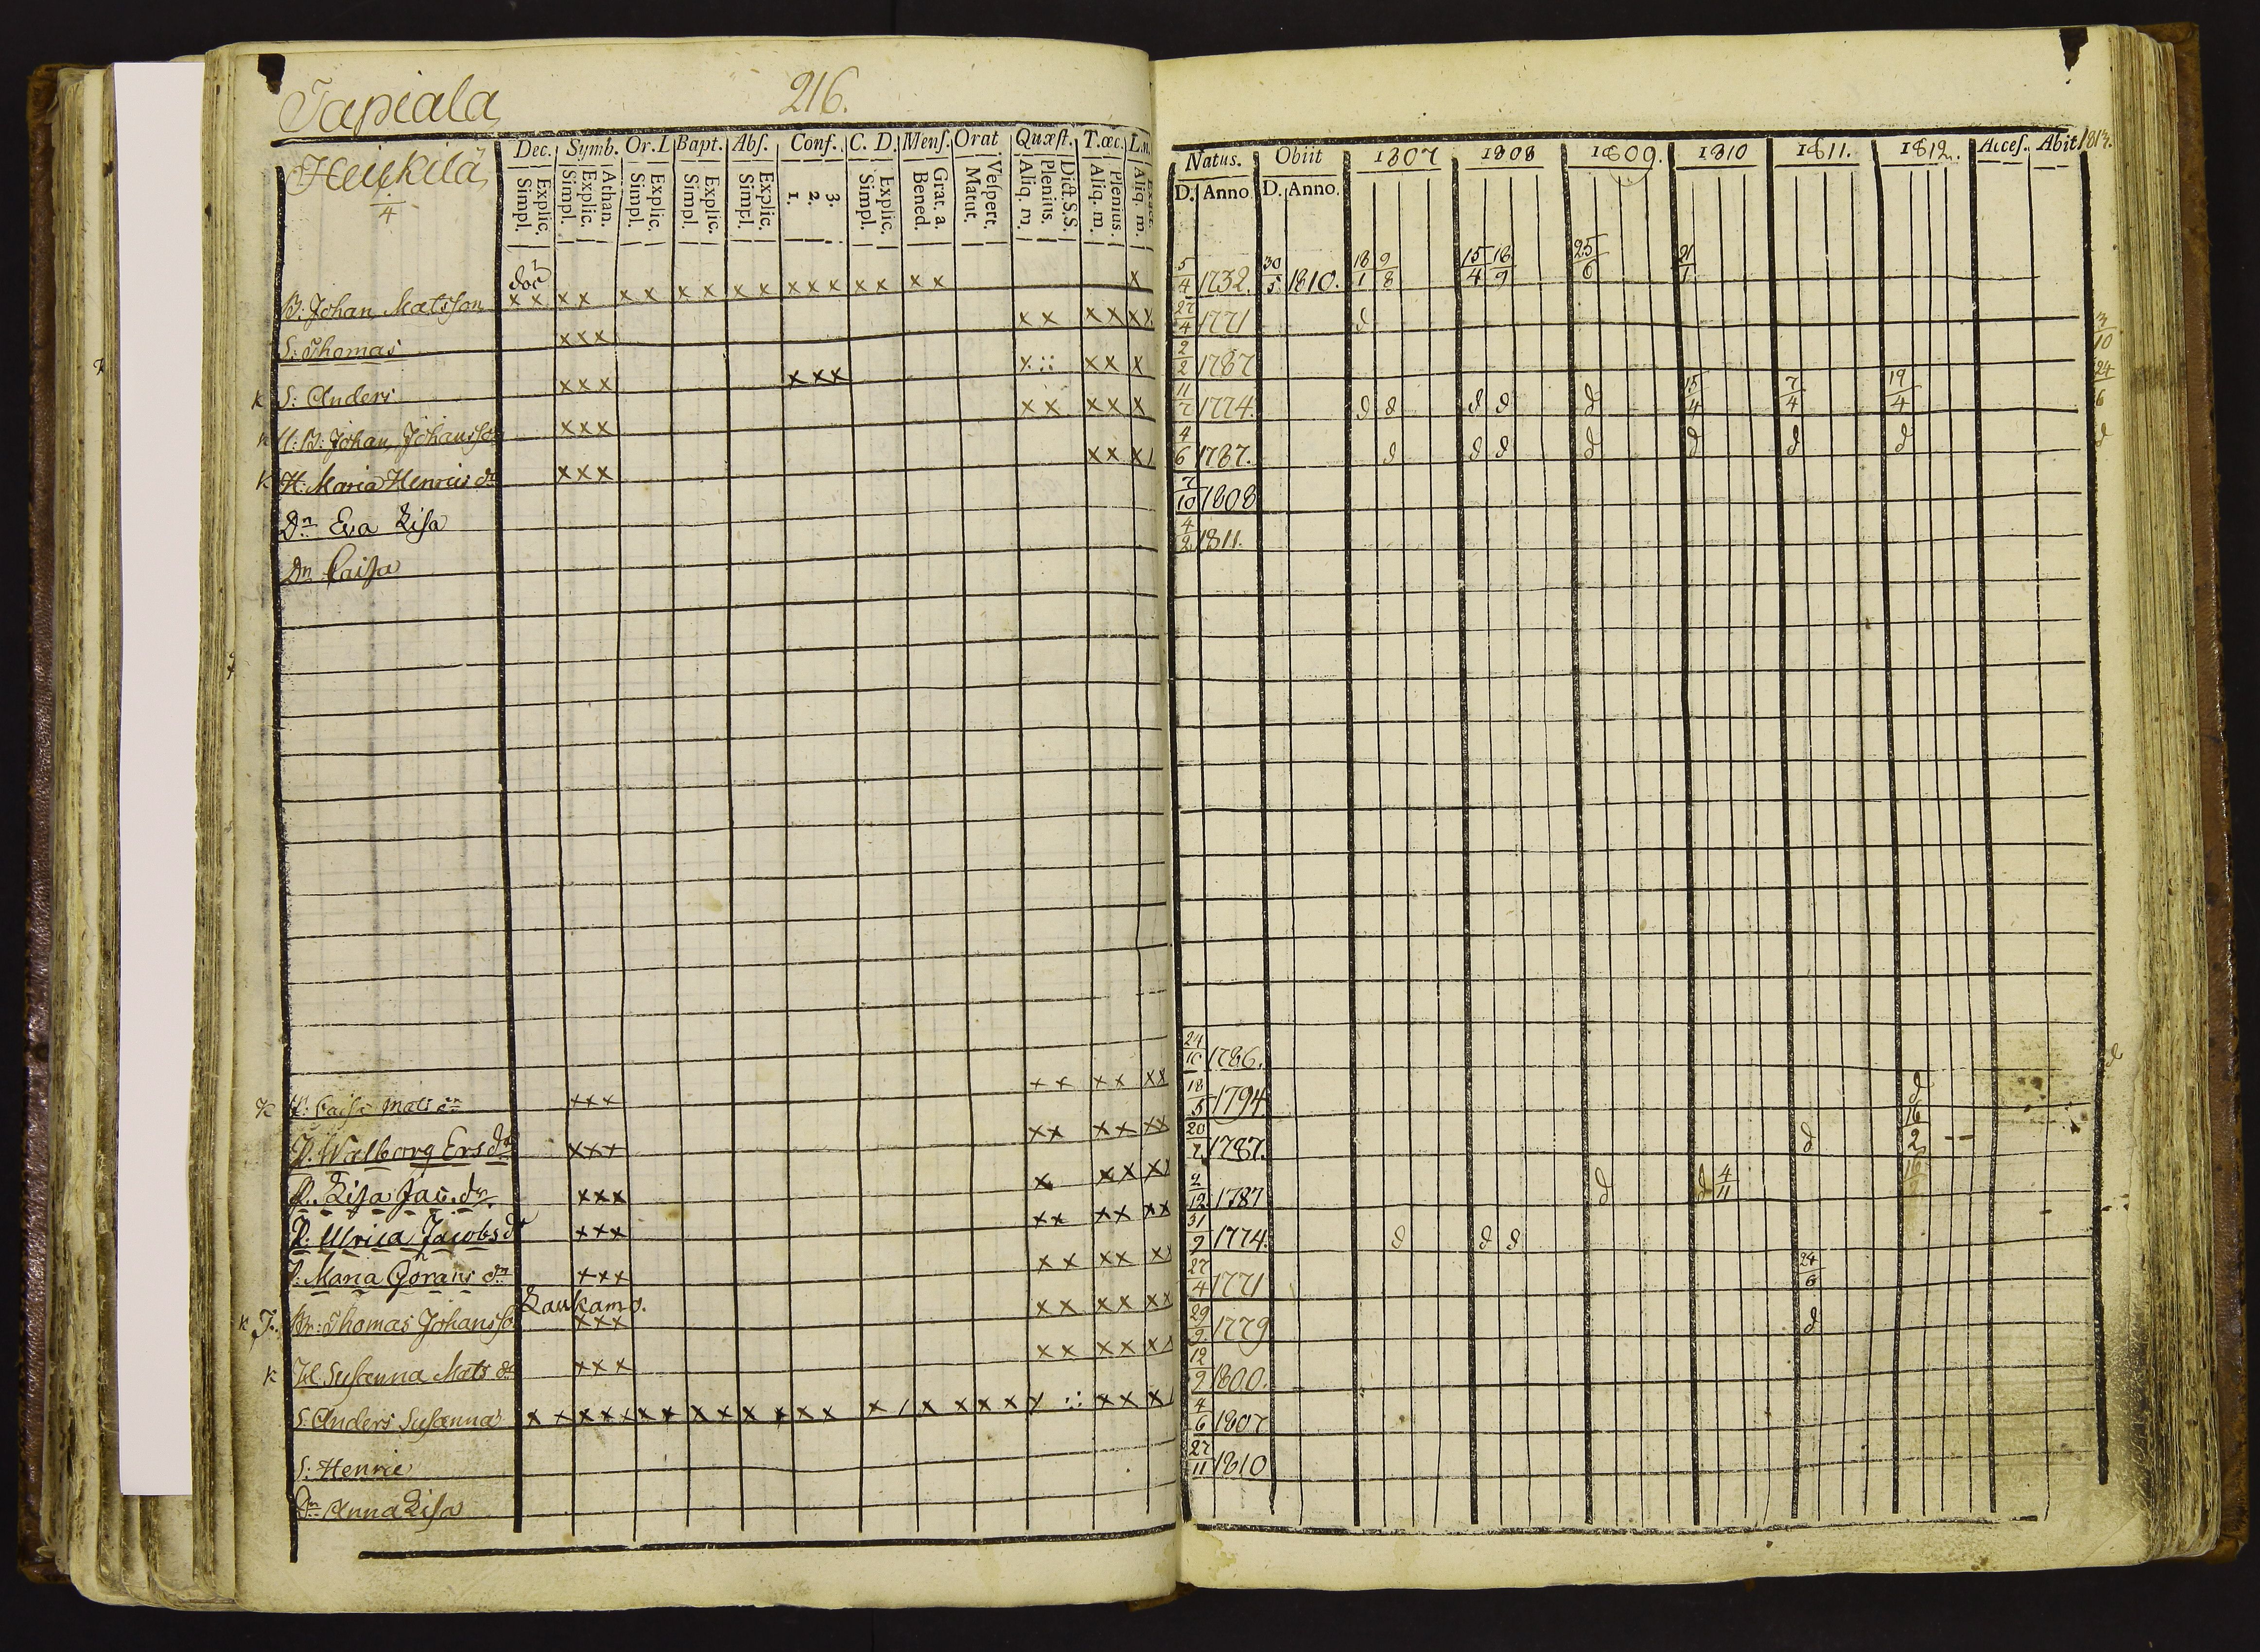 Tapiala 216.
Heickilä
4
Dec. Symb. Or. L Bapt. Abs. Conf. C. D. Mens. Orat Quæst. T. œc. L.n.
Simpl. Explic. Simpl. Explic. Athan. Simpl. Explic. Simpl. Explic. Simpl. Explic. 1. 2. 3. Simpl. Explic. Bened. Grat. a. Matut. Vespert. Aliq. m. Plenius. Dict. S.S. Aliq. m. Plenius. Aliq. m.
Natus. Obiit 1807 1808 1809. 1810 1811. 1812. Acces. Abit 1813.
D. Anno D. Anno.
B: Johan Matsson x x x x x x x x x x x x x x x x x x 5/4 1732. 30/5 1810. 18/1 9/8 15/4 18/9 25/6 21/1
S: Thomas x x x x x x x x x 27/4 1771 d 3/10
k S: Anders x x x x x x x :: x x x 2/2 1787 24/6
k U: B: Johan Johansson x x x x x x x x 11/7 1774. d d d d d 15/4 7/4 19/4 d
k H: Maria Henrics dr x x x x x x 4/6 1787. d d d d d d d
Dr Eva Lisa 7/10 1808
Dr Caisa 4/2 1811.
K H: Caisa Mats dr x x x x x x x x x 24/10 1786. d
P. Walborg Ers dr x x x x x x x x x 18/5 1794 d 16/2
P. Lisa Jac. dr x x x x x x x 20/7 1787. d
P: Ulrica Jacobs dr x x x x x x x x x 2/12 1787 d d 4/11
P: Maria Görans dr x x x x x x x x 31/9 1774. d d d
Laukamo.
K J. Br: Thomas Johansso x x x x x x x x x 27/4 1771 24/6
k H. Susanna Mats dr x x x x x x x x 29/9 1779 d
S. Anders Susanna 12/9 1800.
S: Henric 4/6 1807
Dr Anna Lisa 27/11 1810